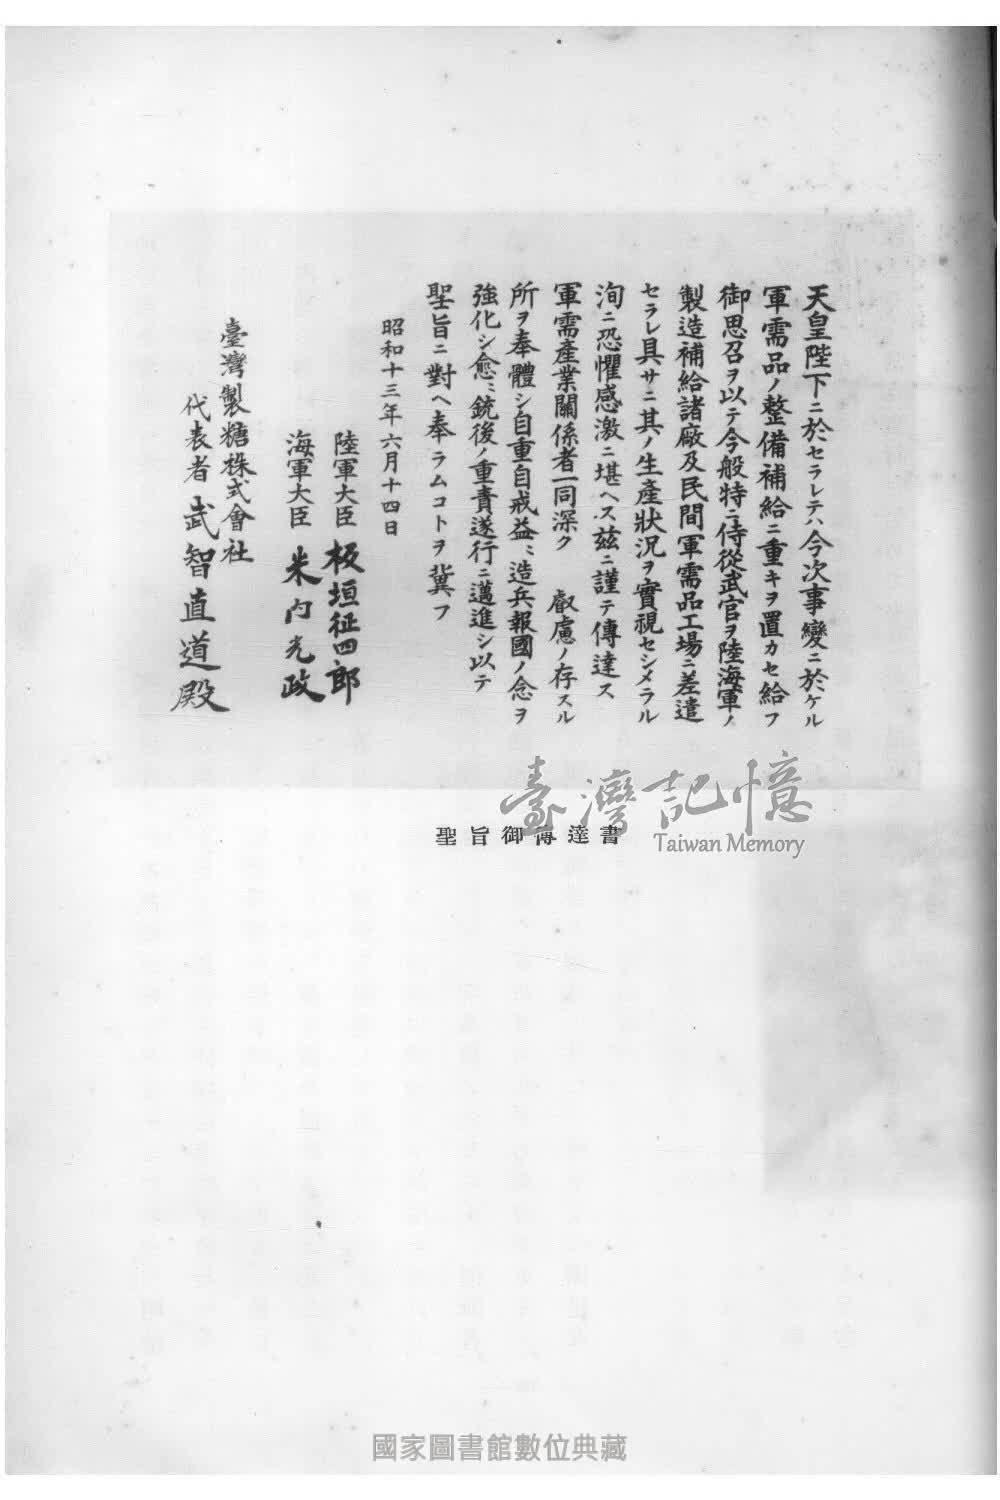 天皇陛下ニ於セラレテハ今次事變ニ於ケル
軍需品ノ整備補給ニ重キヲ置カセ給フ
御思召ヲ以テ今般特ニ侍從武官ヲ陸海軍ノ
製造補給諸廠及民間軍需品工場ニ差遣
セラレ具サニ其ノ生產狀況ヲ實視セシメラル
洵ニ恐懼感激ニ堪ヘス茲ニ謹テ傳達ス
軍需產業關係者一同深ク 叡慮ノ存スル
所ヲ奉體シ自重自戒益〻造兵報國ノ念ヲ
強化シ愈〻銃後ノ重責遂行ニ邁進シ以テ
聖旨ニ對ヘ奉ラムコトヲ冀フ
昭和十三年六月十四日
陸軍大臣 板垣征四郎
海軍大臣 米內光政
臺灣製糖株式會社
代表者 武智直道殿
聖旨御傳達書
臺灣記憶
Taiwan Memory
國家圖書館數位典藏